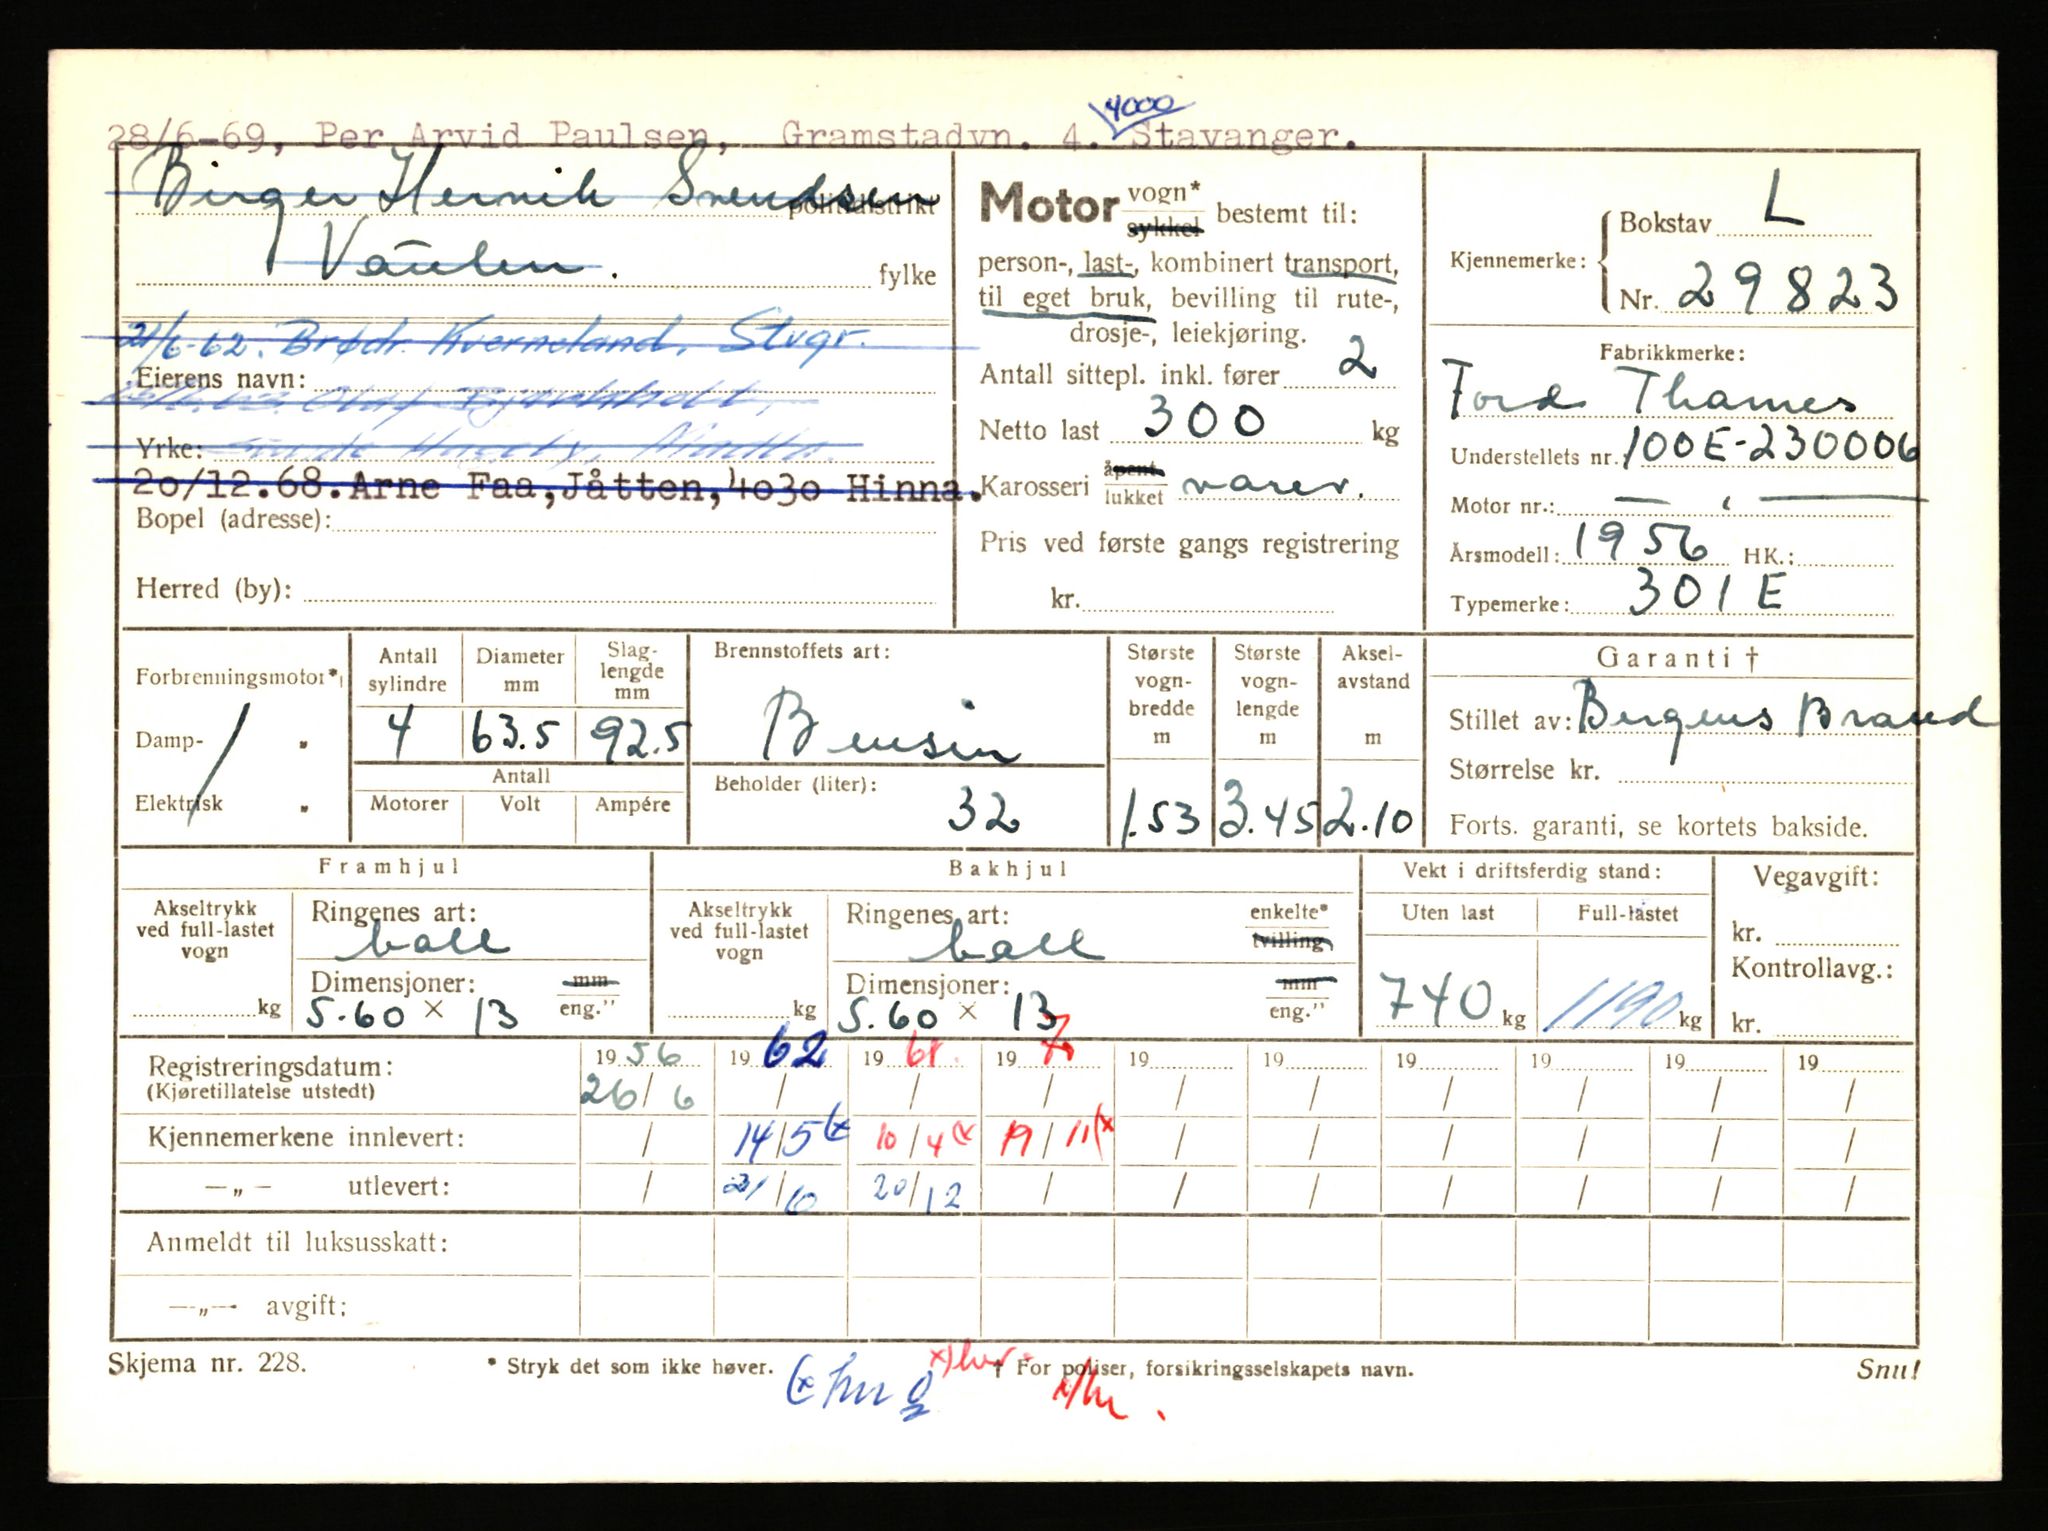 4000
28/6-69, Per Arvid Paulsen, Gramstadvn. 4. Stavanger.
Birger Henrik Svendsen politidistrikt
Vaulen. fylke
21/6-62. Brødr. Kverneland, Stvgr.
Eierens navn:
Olaf
Yrke:
20/12.68. Arne Faa, Jåtten, 4030 Hinna.
Bopel (adresse):
Herred (by):
Motor vogn* sykkel bestemt til:
person-, last-, kombinert transport,
til eget bruk, bevilling til rute-,
drosje-, leiekjøring.
Antall sittepl. inkl. fører 2
Netto last 300 kg
Karosseri åpent lukket varev.
Pris ved første gangs registrering
kr.
Kjennemerke: Bokstav L
Nr. 29823
Fabrikkmerke:
Ford Thames
Understellets nr. 100E-230006
Motor nr.: — " —
Årsmodell: 1956 HK.:
Typemerke: 301 E
Forbrenningsmotor*
Damp- "
Elektrisk "
Antall sylindre 4
Diameter mm 63.5
Slaglengde mm 92.5
Antall
Motorer Volt Ampére
Brennstoffets art:
Bensin
Beholder (liter):
32
Største vognbredde m 1.53
Største vognlengde m 3.45
Akselavstand m 2.10
Garanti †
Stillet av: Bergens Brand
Størrelse kr.
Forts. garanti, se kortets bakside.
Framhjul
Akseltrykk ved full-lastet vogn
kg
Ringenes art:
ball
Dimensjoner: mm
5.60 x 13 eng."
Bakhjul
Akseltrykk ved full-lastet vogn
kg
Ringenes art: enkelte*
ball tvilling
Dimensjoner: mm
5.60 x 13 eng."
Vekt i driftsferdig stand:
Uten last Full-lastet
740 kg 1190 kg
Vegavgift:
kr.
Kontrollavg.:
kr.
Registreringsdatum: 19 56 19 62 19 68 19 19 19 19 19 19 19
(Kjøretillatelse utstedt) 26/6 / / / / / / / / /
Kjennemerkene innlevert: / 14/5 (x 10/4 (x 19/11 (x / / / / / /
—„— utlevert: / 21/6 20/12 / / / / / / /
Anmeldt til luksusskatt:
—„— avgift:
Skjema nr. 228. * Stryk det som ikke høver. † For poliser, forsikringsselskapets navn. Snu!